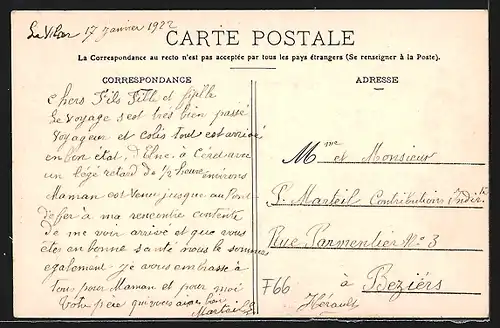 Le Vilar 17 janvier 1922
CARTE POSTALE
La Correspondance au recto n'est pas acceptée par tous les pays étrangers (Se renseigner à la Poste).
CORRESPONDANCE
chers Fils Fille et fifille
Le voyage s'est très bien passé
Voyageur et colis tout est arrivé
en bon état, d'Elne à Céret avec
un légé retard de 1/2 heure environs
Maman est venu jusque au Pont
de fer à ma rencontre contente
de me voir arrivé et que vous
êtes en bonne santé nous le sommes
egalement - je vous embrasse à
tous pour Maman et pour moi
Votre père qui vous aime bien
Marteil
ADRESSE
Mme et Monsieur
P. Marteil Contributions Indir.tes
Rue Parmentier No 3
à Beziérs
Hérault
F66